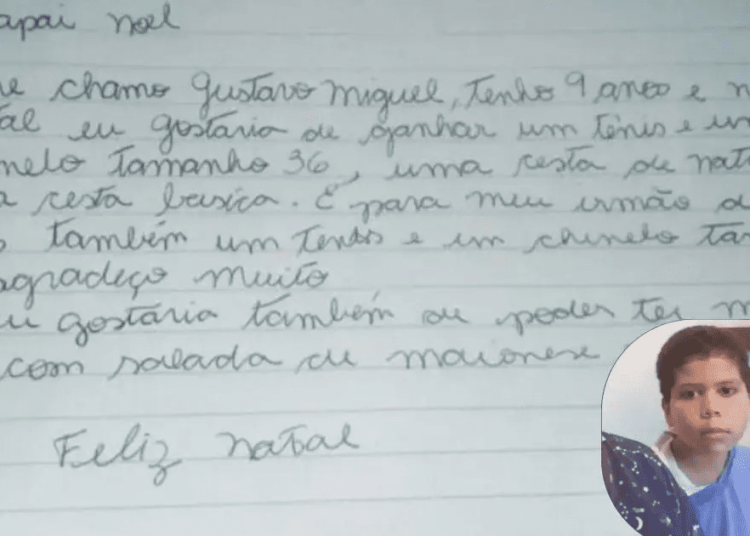 apai noel
e chamo Gustavo miguel, tenho 9 anos e n
al eu gostaria de ganhar um tênis e um
nelo tamanho 36, uma cesta de nat
a cesta basica. E para meu irmão d
o também um tenis e um chinelo ta
agradeço muito
u gostaria também de poder ter
com salada de maionese
Feliz natal